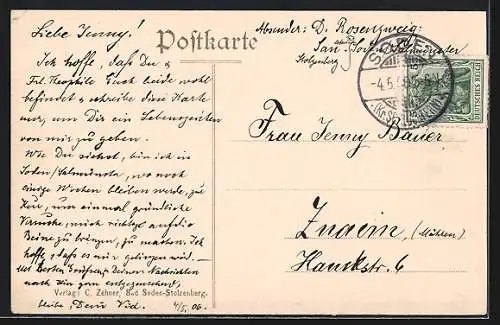 Liebe Jenny!
Postkarte
Absender: D. Rosenzweig
Ich hoffe, daß Du &
Frl. Theophile Euch beide wohl
befindet & schreibe diese Karte
nur, um Dir ein Lebenszeichen
von mir zu geben.
Wie Du siehst, bin ich in
Soden/Salmünster, wo noch
einige Wochen bleiben werde, zur
Kur, um einmal gründliche
Versuche, mich richtig auf die
Beine zu bringen, zu machen. Ich
hoffe, daß es mir gelingen wird.
Mit Besten Grüßen, Deinen Nachrichten
entgegensehend,
bleibe, Dein
4/5. 06.
Verlag: C. Zehner, Bad Soden-Stolzenberg.
-4.5.06
DEUTSCHES REICH
5
Frau Jenny Bauer
Znaim, (Mähren)
6